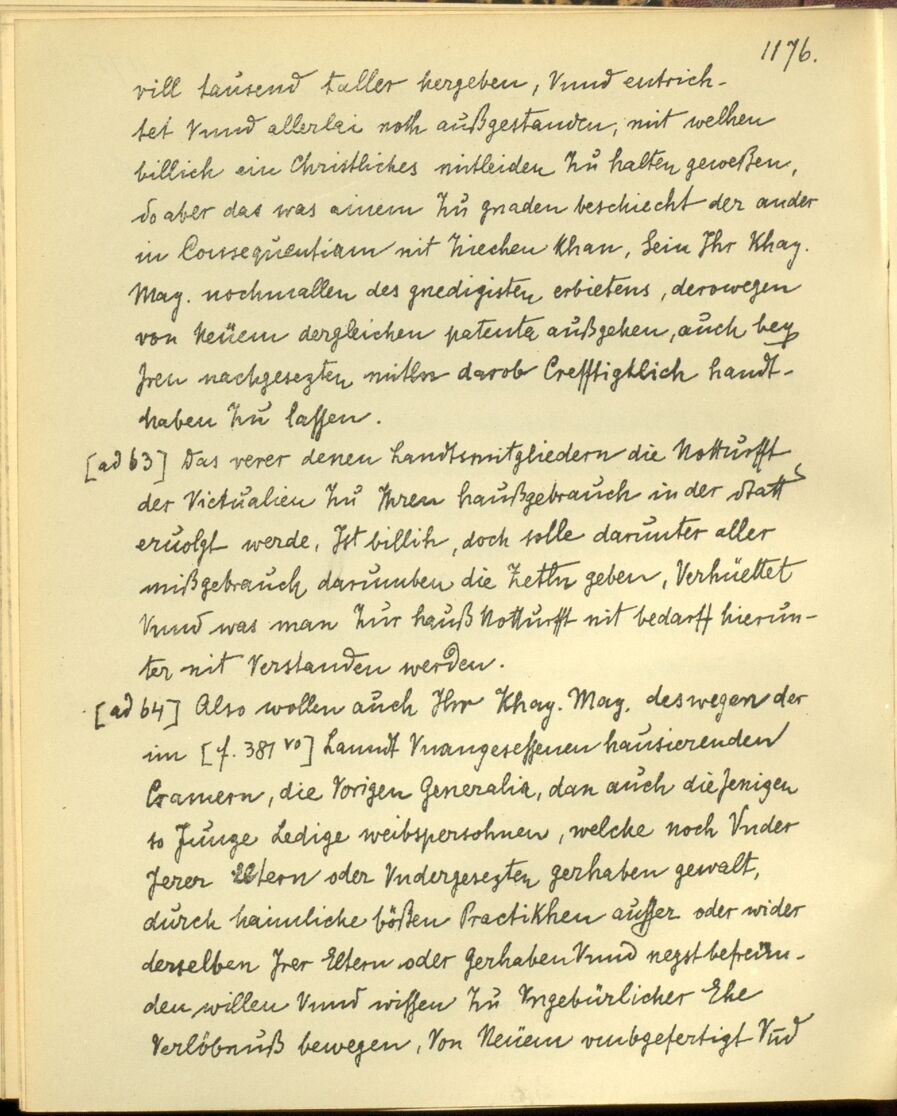 1176.
vill tausend taller hergeben, Vnnd entrich-
tet Vnnd allerlai noth außgestanden, mit welhen
billich ein Christliches mitleiden Zu halten geweßen,
do aber das was ainem Zu gnaden beschiecht der ander
in Consequentiam nit Ziechen khan, Sein Ihr Khay.
May. nochmallen des gnedigisten erbietens, derowegen
von Neüem dergleichen patenta außgehen, auch bey
Jren nachgesezten mitln darob Crefftigtlich handt-
haben Zu lassen.
[ad 63] Das verer denen Landtsmitgliedern die Notturfft
der Victualien Zu Ihren haußgebrauch in der Statt
eruolgt werde, Ist billich, doch solle darunter aller
mißgebrauch darumben die Zetln geben, Verhüettet
Vnnd was man Zur hauß Notturfft nit bedarff hierun-
ter nit Verstanden werden.
[ad 64] Also wollen auch Ihr Khay. May. deswegen der
im [f. 381 vo] Lanndt Vnangesessenen hausierenden
Cramern, die Vorigen Generalia, dan auch diejenigen
so Junge Ledige weibspersohnen, welche noch Vnder
Jerer Eltern oder Vndergesezten gerhaben gewalt,
durch haimliche bößen Practikhen ausser oder wider
derselben Jrer Eltern oder Gerhaben Vnnd negstbefreün-
den willen Vnnd wissen Zu Vngebürlicher Ehe
Verlöbnuß bewegen, Von Neüem vmbgefertigt Vnd